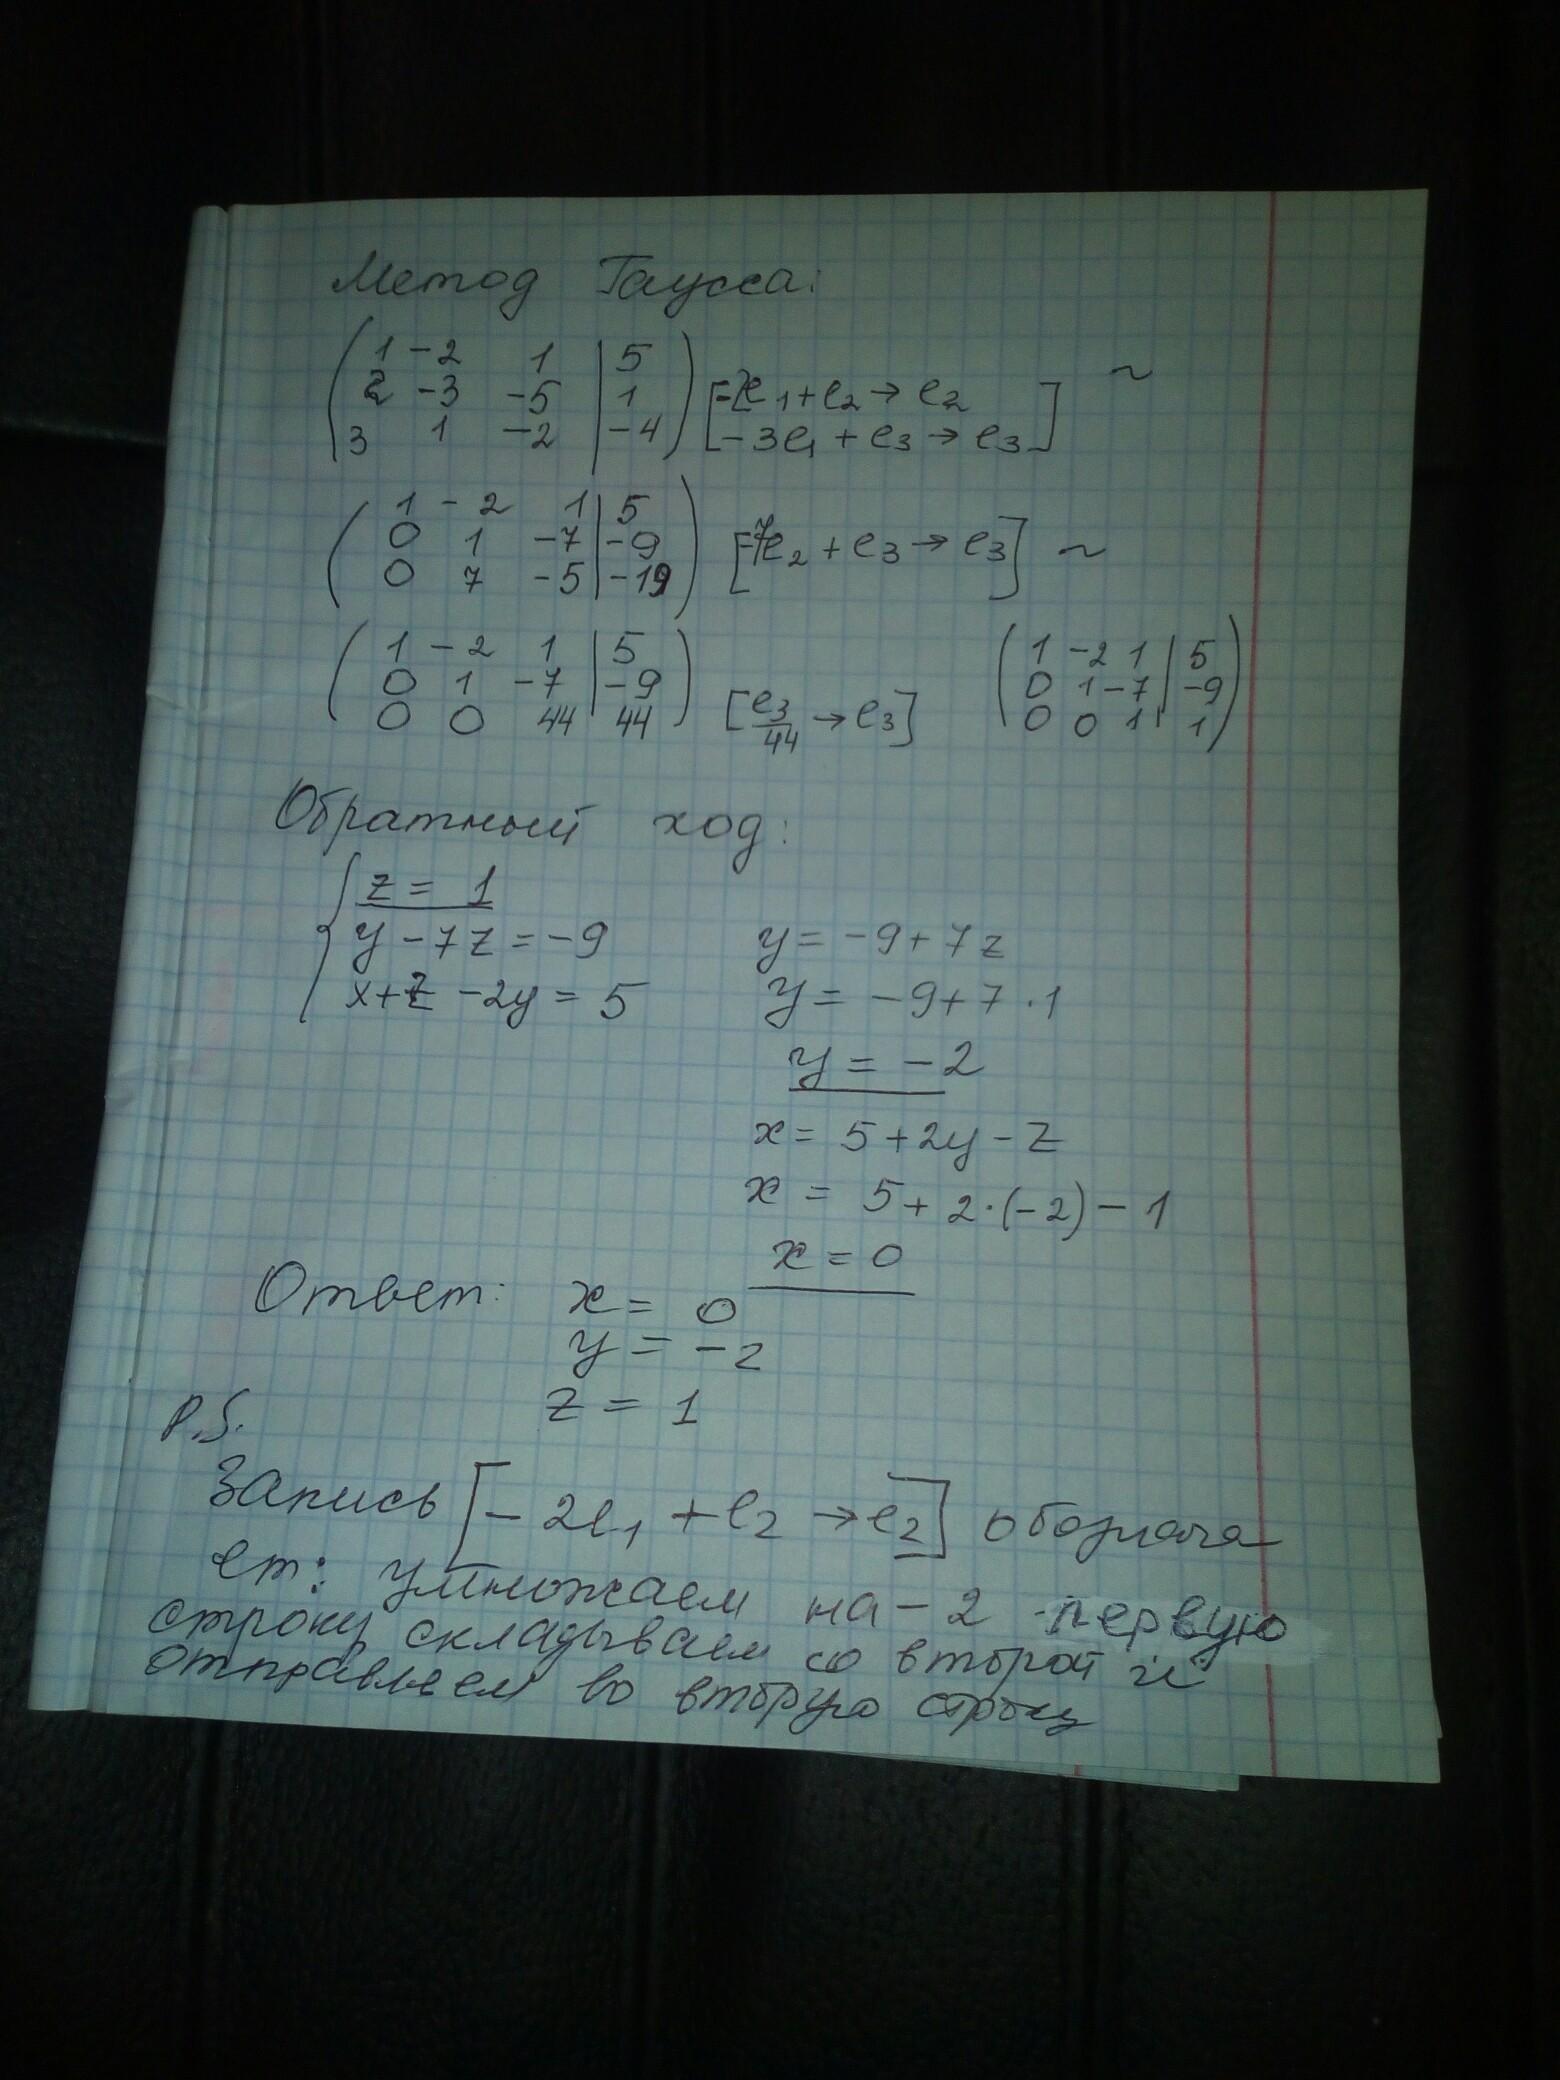 Метод Гаусса:
( 1 -2 1 | 5 )
( 2 -3 -5 | 1 ) [ -2e1 + e2 → e2 ] ~
( 3 1 -2 | -4 ) [ -3e1 + e3 → e3 ]
( 1 -2 1 | 5 )
( 0 1 -7 | -9 ) [ -7e2 + e3 → e3 ] ~
( 0 7 -5 | -19 )
( 1 -2 1 | 5 ) ( 1 -2 1 | 5 )
( 0 1 -7 | -9 ) ( 0 1 -7 | -9 )
( 0 0 44 | 44 ) [ e3/44 → e3 ] ( 0 0 1 | 1 )
Обратный ход:
z = 1
y - 7z = -9 y = -9 + 7z
x + z - 2y = 5 y = -9 + 7 · 1
y = -2
x = 5 + 2y - z
x = 5 + 2·(-2) - 1
x = 0
Ответ: x = 0
y = -2
z = 1
P.S.
Запись [ -2e1 + e2 → e2 ] обознача
ет: умножаем на -2 первую
строку складываем со второй и
отправляем во вторую строку